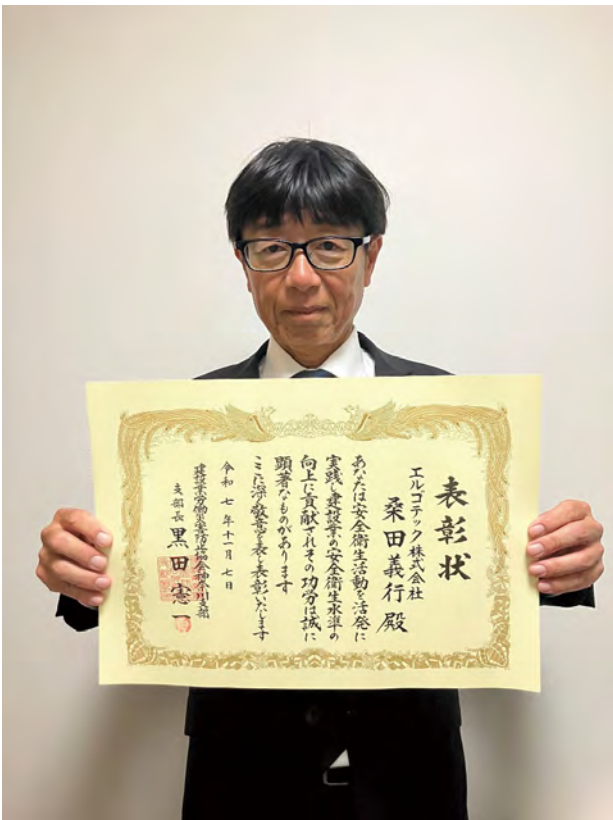 表彰状
エルゴテック株式会社
桒田義行殿
あなたは安全衛生活動を活発に
実践し建設業の安全衛生水準の
向上に貢献されその功労は誠に
顕著なものがあります
ここに深く敬意を表し表彰いたします
令和七年十一月七日
建設業労働災害防止協会神奈川支部
支部長黒田憲一